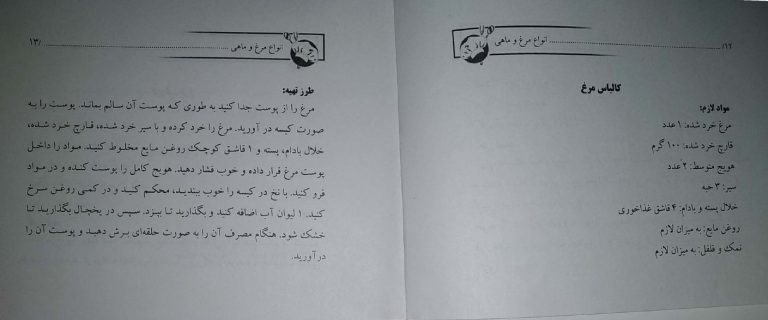 ۱۲/
انواع مرغ و ماهی
کالباس مرغ
مواد لازم:
مرغ خرد شده: ۱ عدد
قارچ خرد شده: ۱۰۰ گرم
هویج متوسط: ۲ عدد
سیر: ۳ حبه
خلال پسته و بادام: ۴ قاشق غذاخوری
روغن مایع: به میزان لازم
نمک و فلفل: به میزان لازم
انواع مرغ و ماهی
۱۳/
طرز تهیه:
مرغ را از پوست جدا کنید به طوری که پوست آن سالم بماند. پوست را به
صورت کیسه در آورید. مرغ را خرد کرده و با سیر خرد شده، قارچ خرد شده،
خلال بادام، پسته و ۱ قاشق کوچک روغن مایع مخلوط کنید. مواد را داخل
پوست مرغ قرار داده و خوب فشار دهید. هویج کامل را پوست کنده و در مواد
فرو کنید. با نخ در کیسه را خوب ببندید، محکم کنید و در کمی روغن سرخ
کنید. ۱ لیوان آب اضافه کنید و بگذارید تا بپزد. سپس در یخچال بگذارید تا
خشک شود. هنگام مصرف آن را به صورت حلقه‌ای برش دهید و پوست آن را
در آورید.